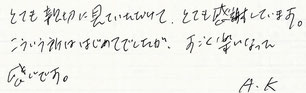 とても親切に見ていただけて、とても感謝しています。
こういう所ははじめてでしたが、すごく楽になった
感じです。
A.K